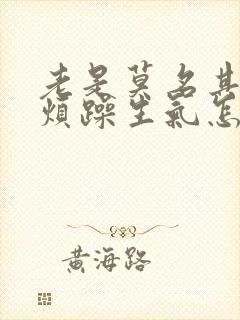 老是莫名其
煩躁生氣怎
黃海路